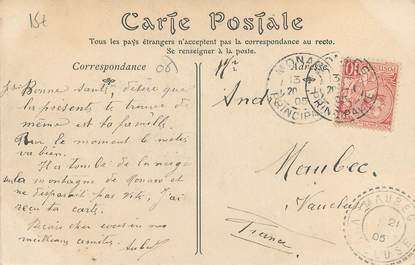 15t
Carte Postale
Tous les pays étrangers n'acceptent pas la correspondance au recto.
Se renseigner à la poste.
Correspondance
Adresse
06
MONACO
13
20
05
PRINCIPAUTÉ
10
Bonne santé, désire que
la présente te trouve de
même et ta famille.
Pour le moment le métier
va bien.
Il a tombé de la neige
sur la montagne de Monaco et
ne disparait pas vite, j'ai
reçu ta carte.
cher cousin nos
meilleures amitiés.
And
Maubec
Vaucluse
France
MAUBEC
21
05